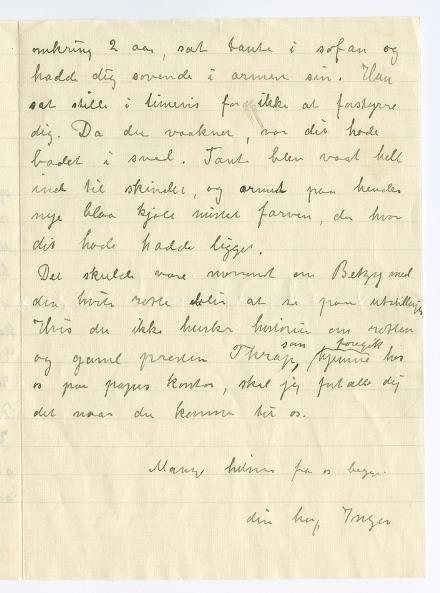 omkring 2 aar, sat tante i sofan og
hadde dig sovende i armen sin. Hun
sat stille i timevis for ikke at forstyrre
dig. Da du vaaknet, var dit hode
badet i sved. Tante blev vaat helt
ind til skindet, og ermet paa hendes
nye blaa kjole mistet farven, der hvor
dit hode hadde ligget.
Det skulde være morsomt om Betzy med
den hvite rotte blir at se paa utstillingen
Hvis du ikke husker historien om rotten
og gamle presten Thrap, som foregik hos
os paa papas kontor, skal jeg fortælle dig
det naar du kommer til os.
Mange hilsner fra os begge.
din Inger